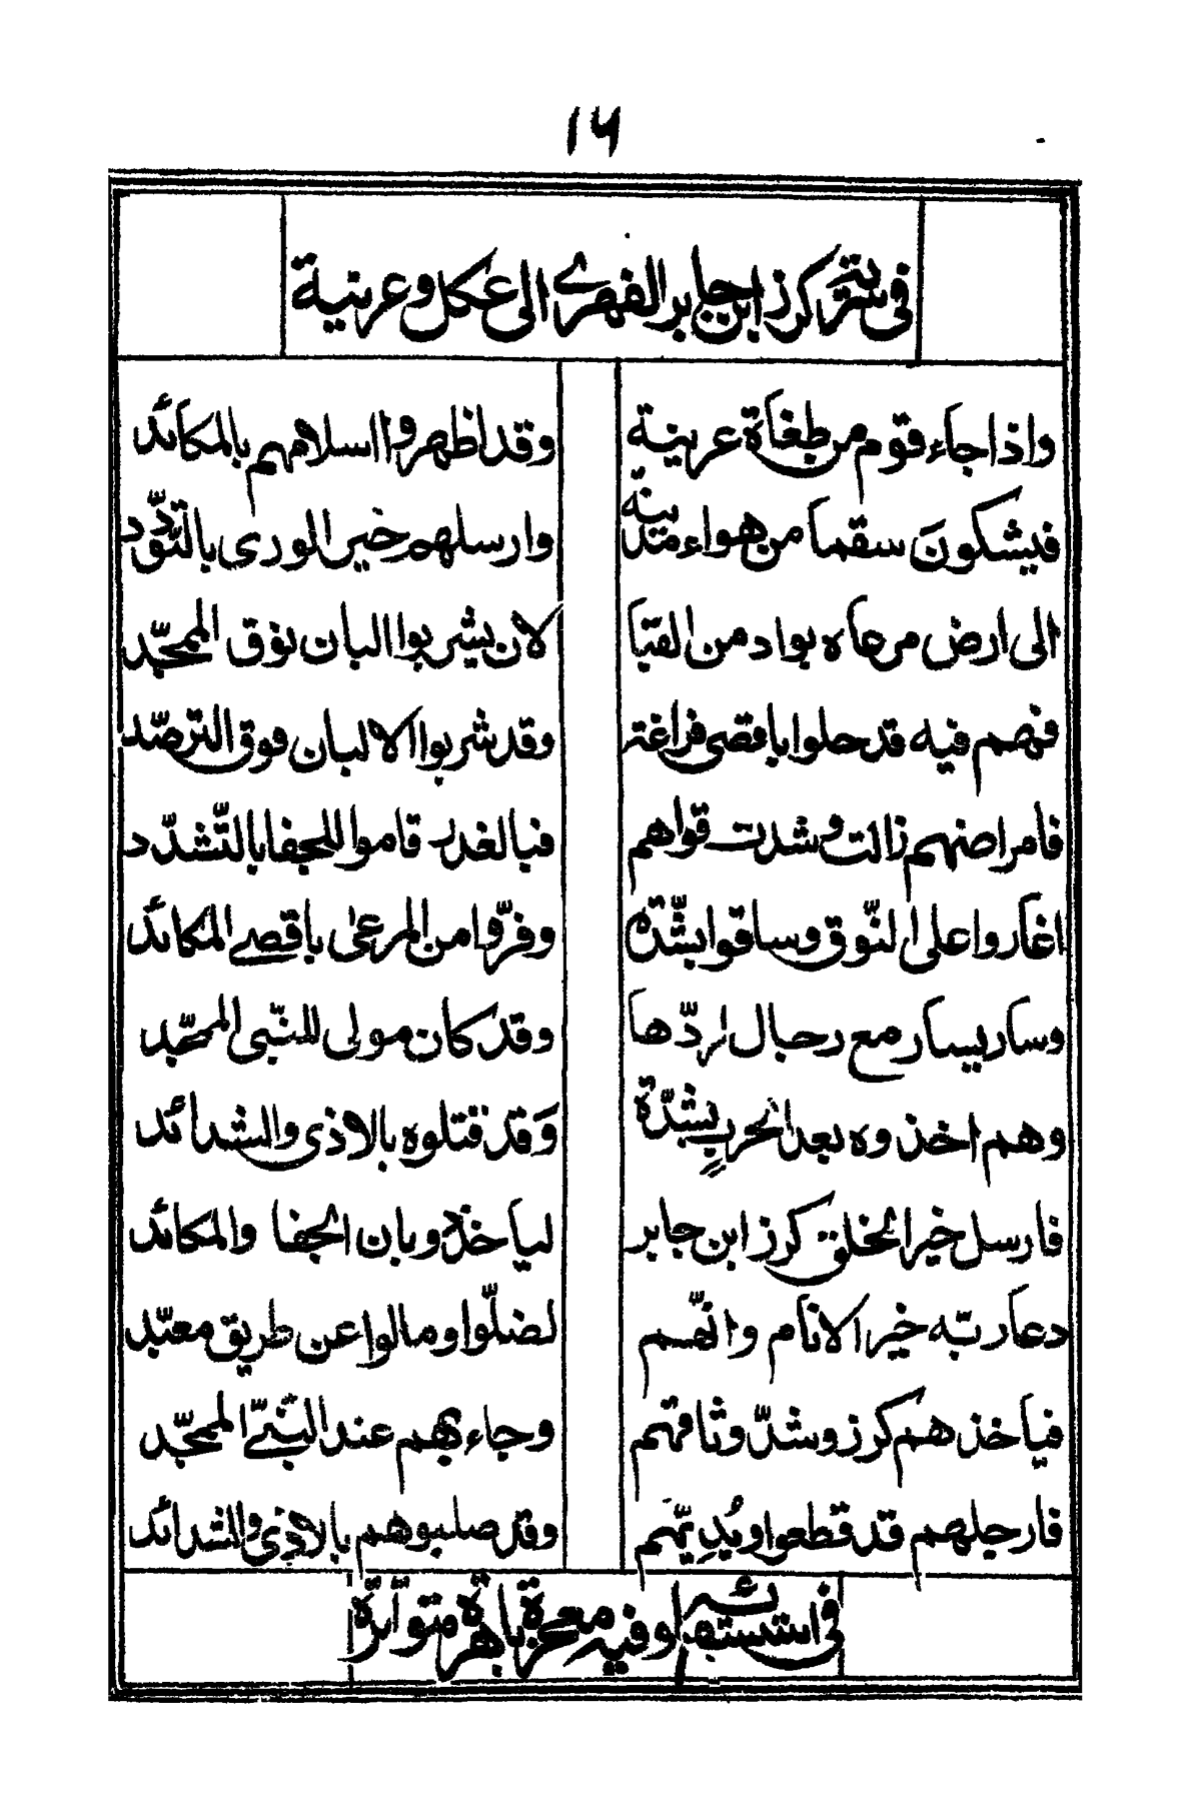 ١٦
فى سرية كرز ابن جابر الفهرے الى عكل و عرينية
واذا جاء قوم من طغاة عرينية وقد اظهروا اسلامهم بالمكائد
فيشكون سقما من هواء مدينة وارسلهم خير الورى بالتودد
الى ارض مرعاه بواد من القبا لان يشربوا البان نوق الممجّد
فهم فيه قد حلوا باقصى فراغة وقد شربوا الالبان فوق الترصّد
فامراضهم زالت وشدت قواهم فبالغدر قاموا للجفا بالتّشدّد
اغاروا على النّوق وساقوا بشّدة وفرّوا من المرعى باقصے المكائد
وسار يسار مع رجال لردّها وقد كان مولى للنبّى الممجّد
وهم اخذوه بعد الحرب بشدّة وَقد قتلوه بالاذى والشدائد
فارسل خير الخلق كرز ابن جابر لياخذ وبان الجفا والمكائد
دعا ربّه خير الانام وانّهم لضلّوا ومالوا عن طريق معبّد
فياخذهم كرز وشدّ وثاقهم وجاء بهم عند النّبےّ الممجّد
فارجلهم قد قطعوا ويُديّهم وقد صلبوهم بالاذى والشدائد
فى استسقائه وفيه معجزة باهرة متواترة